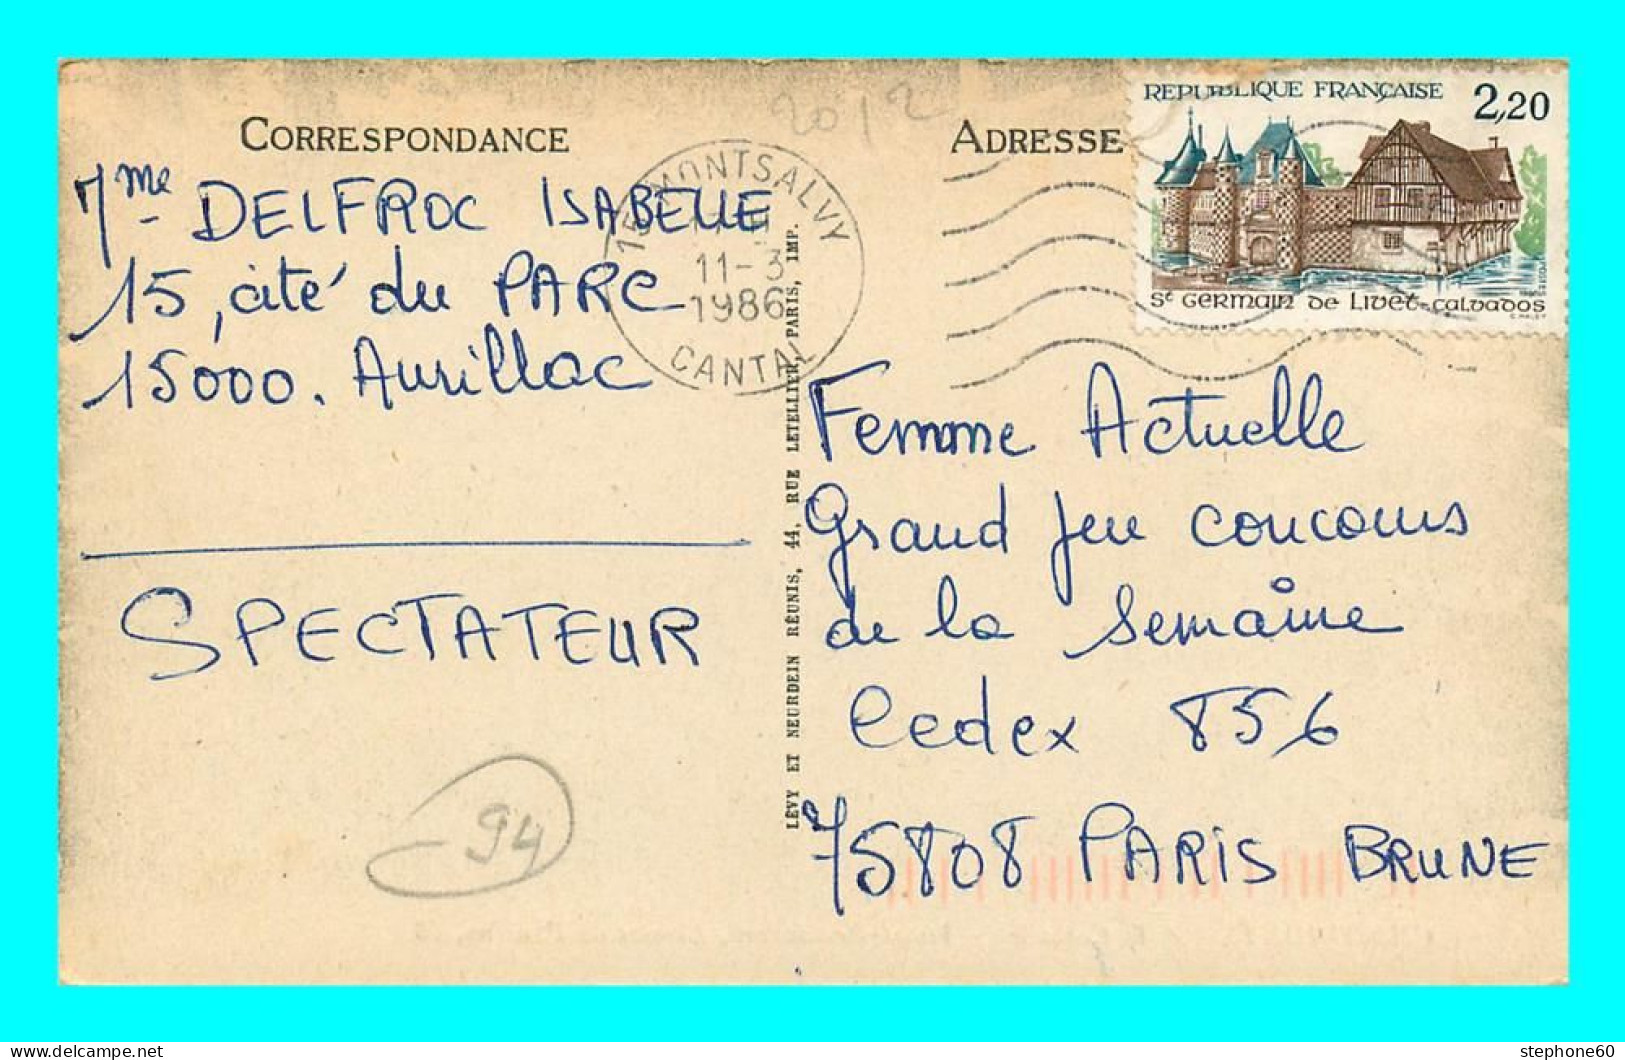 CORRESPONDANCE
Mme DELFROC ISABELLE
15, cité du PARC
15000. Aurillac
SPECTATEUR
94
2012
15 MONTSALVY
11-3
1986
CANTAL
LÉVY ET NEURDEIN RÉUNIS, 44, RUE LETELLIER, PARIS, IMP.
ADRESSE
REPUBLIQUE FRANÇAISE 2,20
St GERMAIN DE LIVET-CALVADOS
Femme Actuelle
Grand jeu concours
de la semaine
Cedex 856
75808 PARIS BRUNE
stephone60